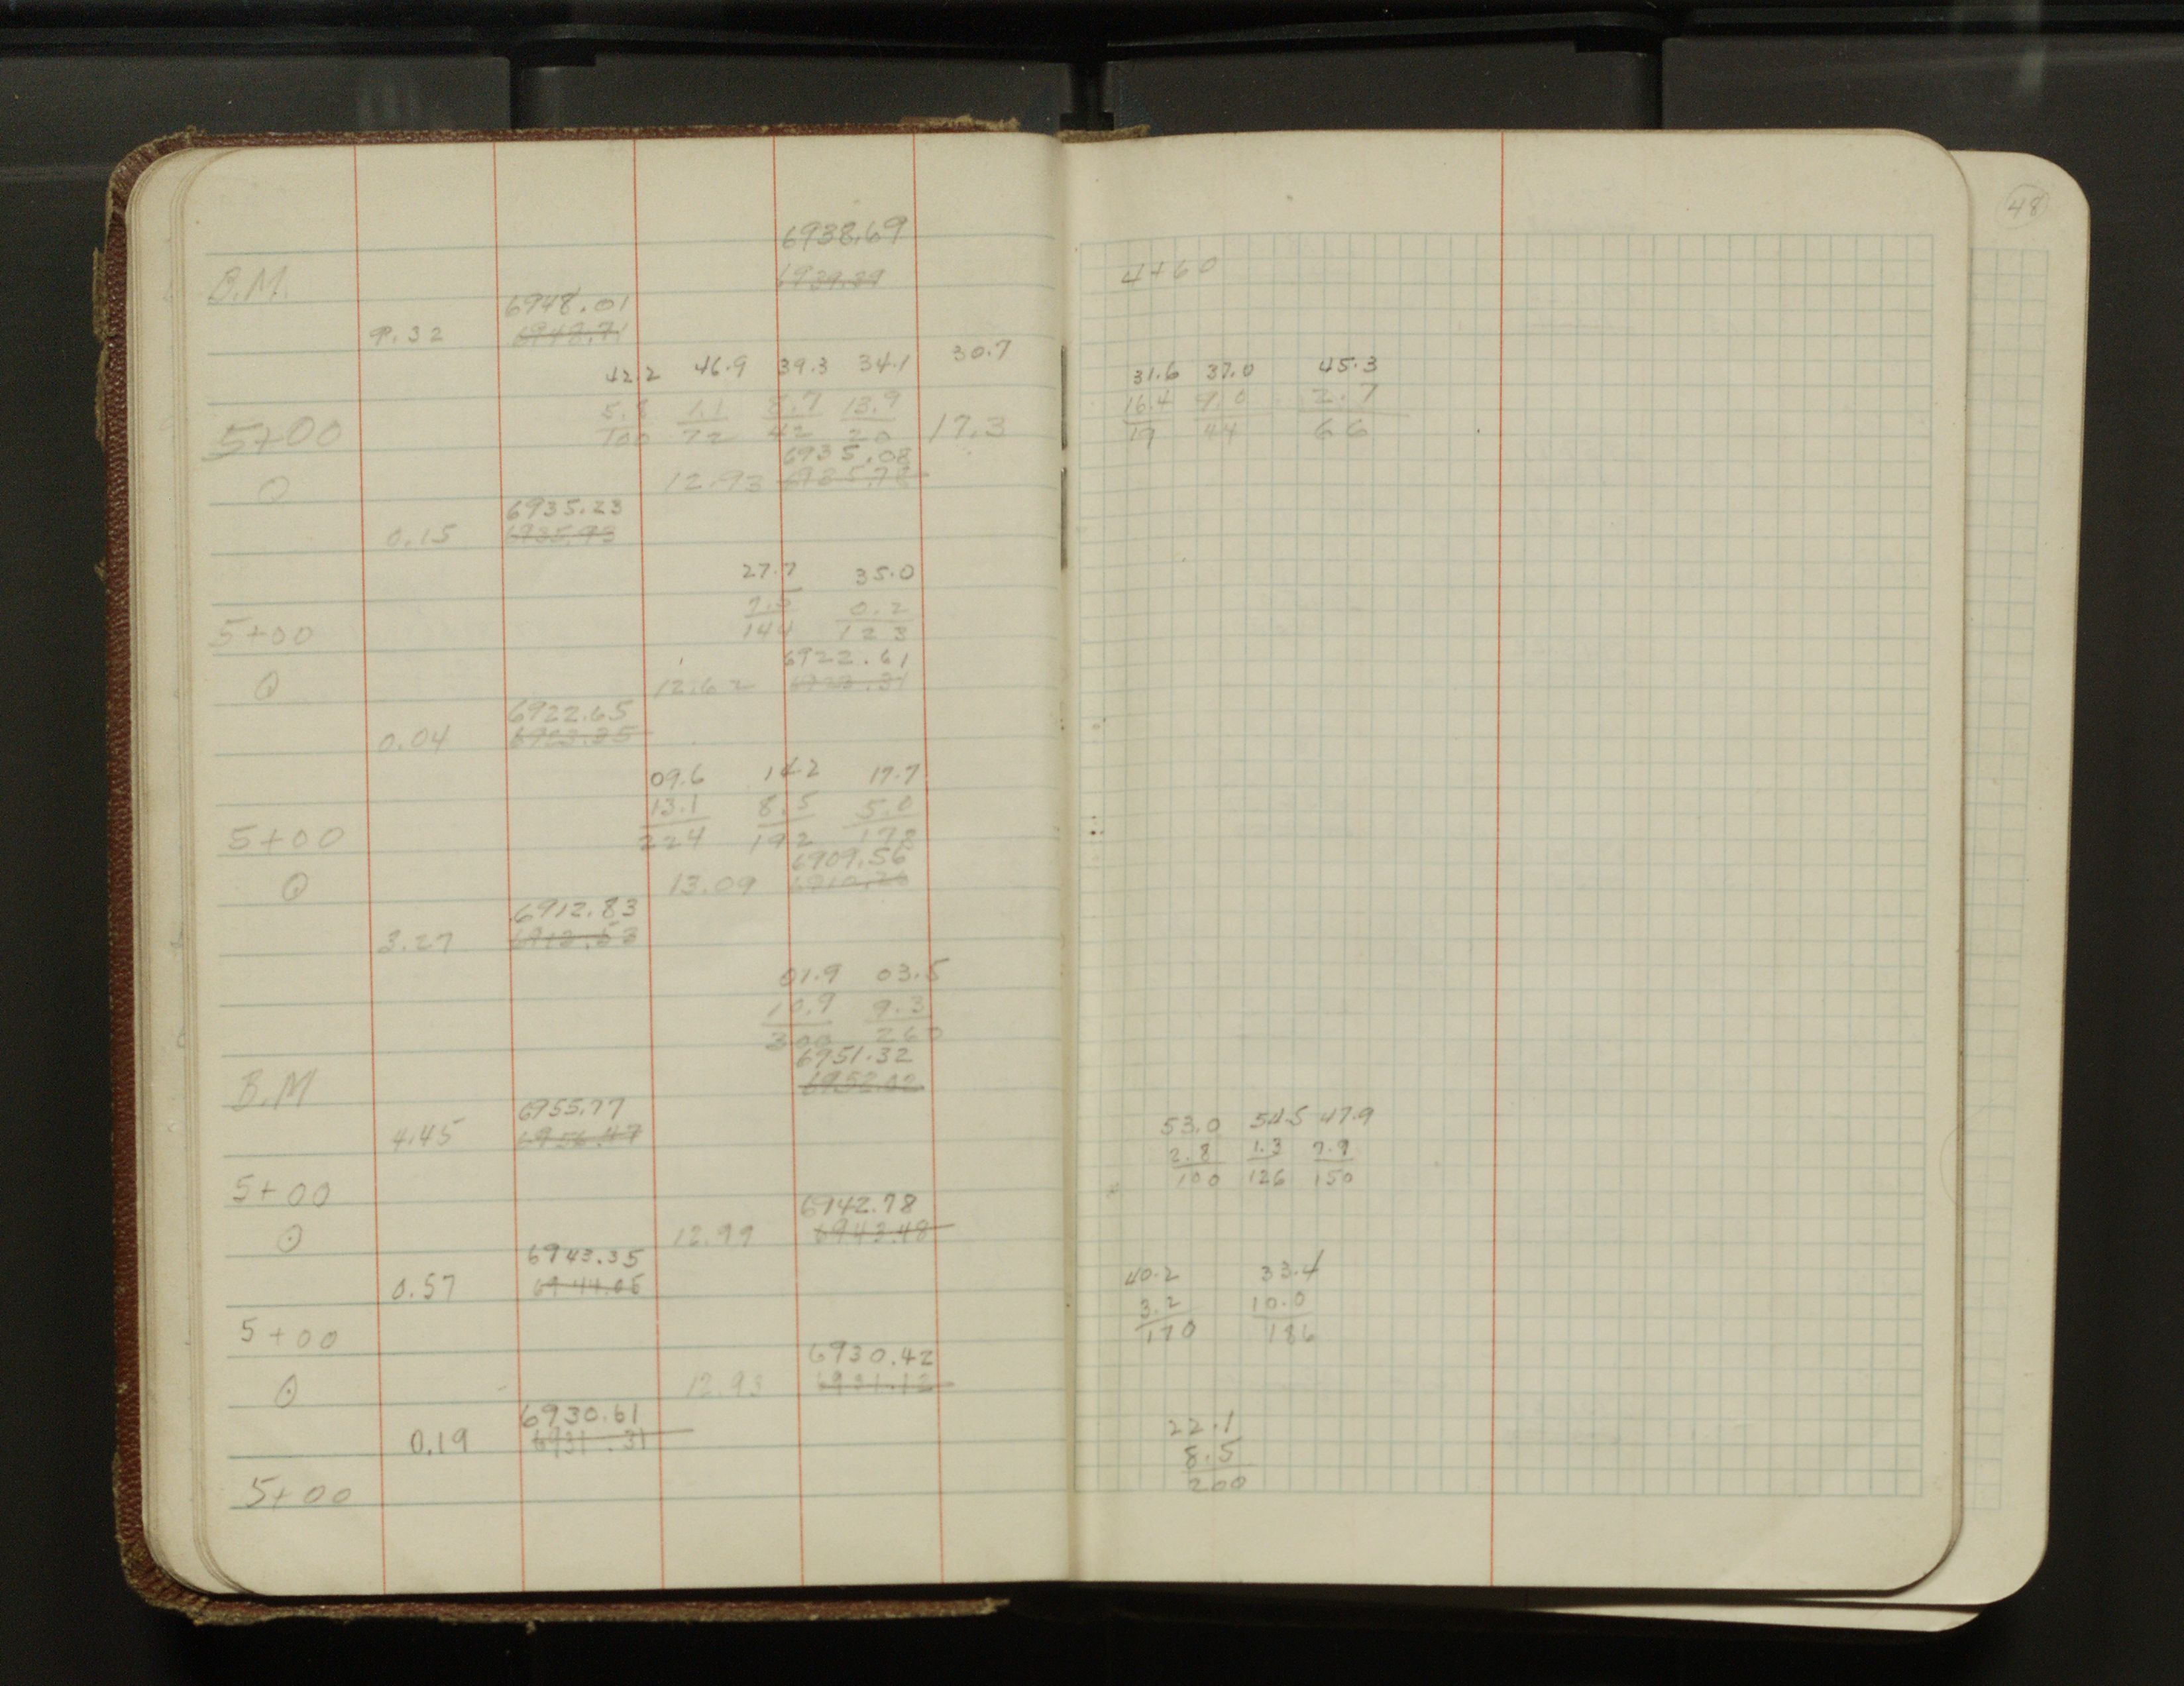 48
6938.69
B.M. 6939.39
6948.01
9.32 6948.71
42.2 46.9 39.3 34.1 30.7
5.8 1.1 8.7 13.9
5+00 100 72 42 20 17.3
6935.08
12.93 6935.78
6935.23
0.15 6935.93
27.7 35.0
7.5 0.2
5+00 144 123
6922.61
12.62 6923.31
6922.65
0.04 6923.35
09.6 14.2 17.7
13.1 8.5 5.0
5+00 224 192 178
6909.56
13.09 6910.26
6912.83
3.27 6913.53
01.9 03.5
10.9 9.3
300 260
6951.32
B.M 6952.02
6955.77
4.45 6956.47
5+00
6942.78
12.99 6943.48
6943.35
0.57 6944.05
5+00
6930.42
12.93 6931.12
6930.61
0.19 6931.31
5+00
4+60
31.6 37.0 45.3
16.4 9.0 2.7
19 44 66
53.0 54.5 47.9
2.8 1.3 7.9
100 126 150
40.2 33.4
3.2 10.0
170 186
22.1
8.5
200